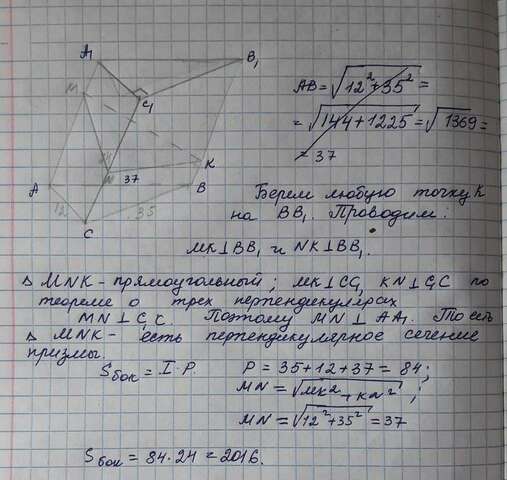 A₁
B₁
C₁
M
N
K
A
B
C
12
35
37
AB = √12² + 35² =
= √144 + 1225 = √1369 =
= 37
Берем любую точку К
на BB₁ Проводим:
MK⊥BB₁ и NK⊥BB₁.
△ MNK - прямоугольный; MK⊥CC₁ KN⊥C₁C по
теореме о трех перпендикулярах
MN⊥C₁C. Поэтому MN⊥AA₁. То есть
△ MNK - есть перпендикулярное сечение
призмы.
Sбок = l·P P = 35+12+37 = 84.
MN = √MK² + KN²;
MN = √12² + 35² = 37
Sбок = 84·24 = 2016.